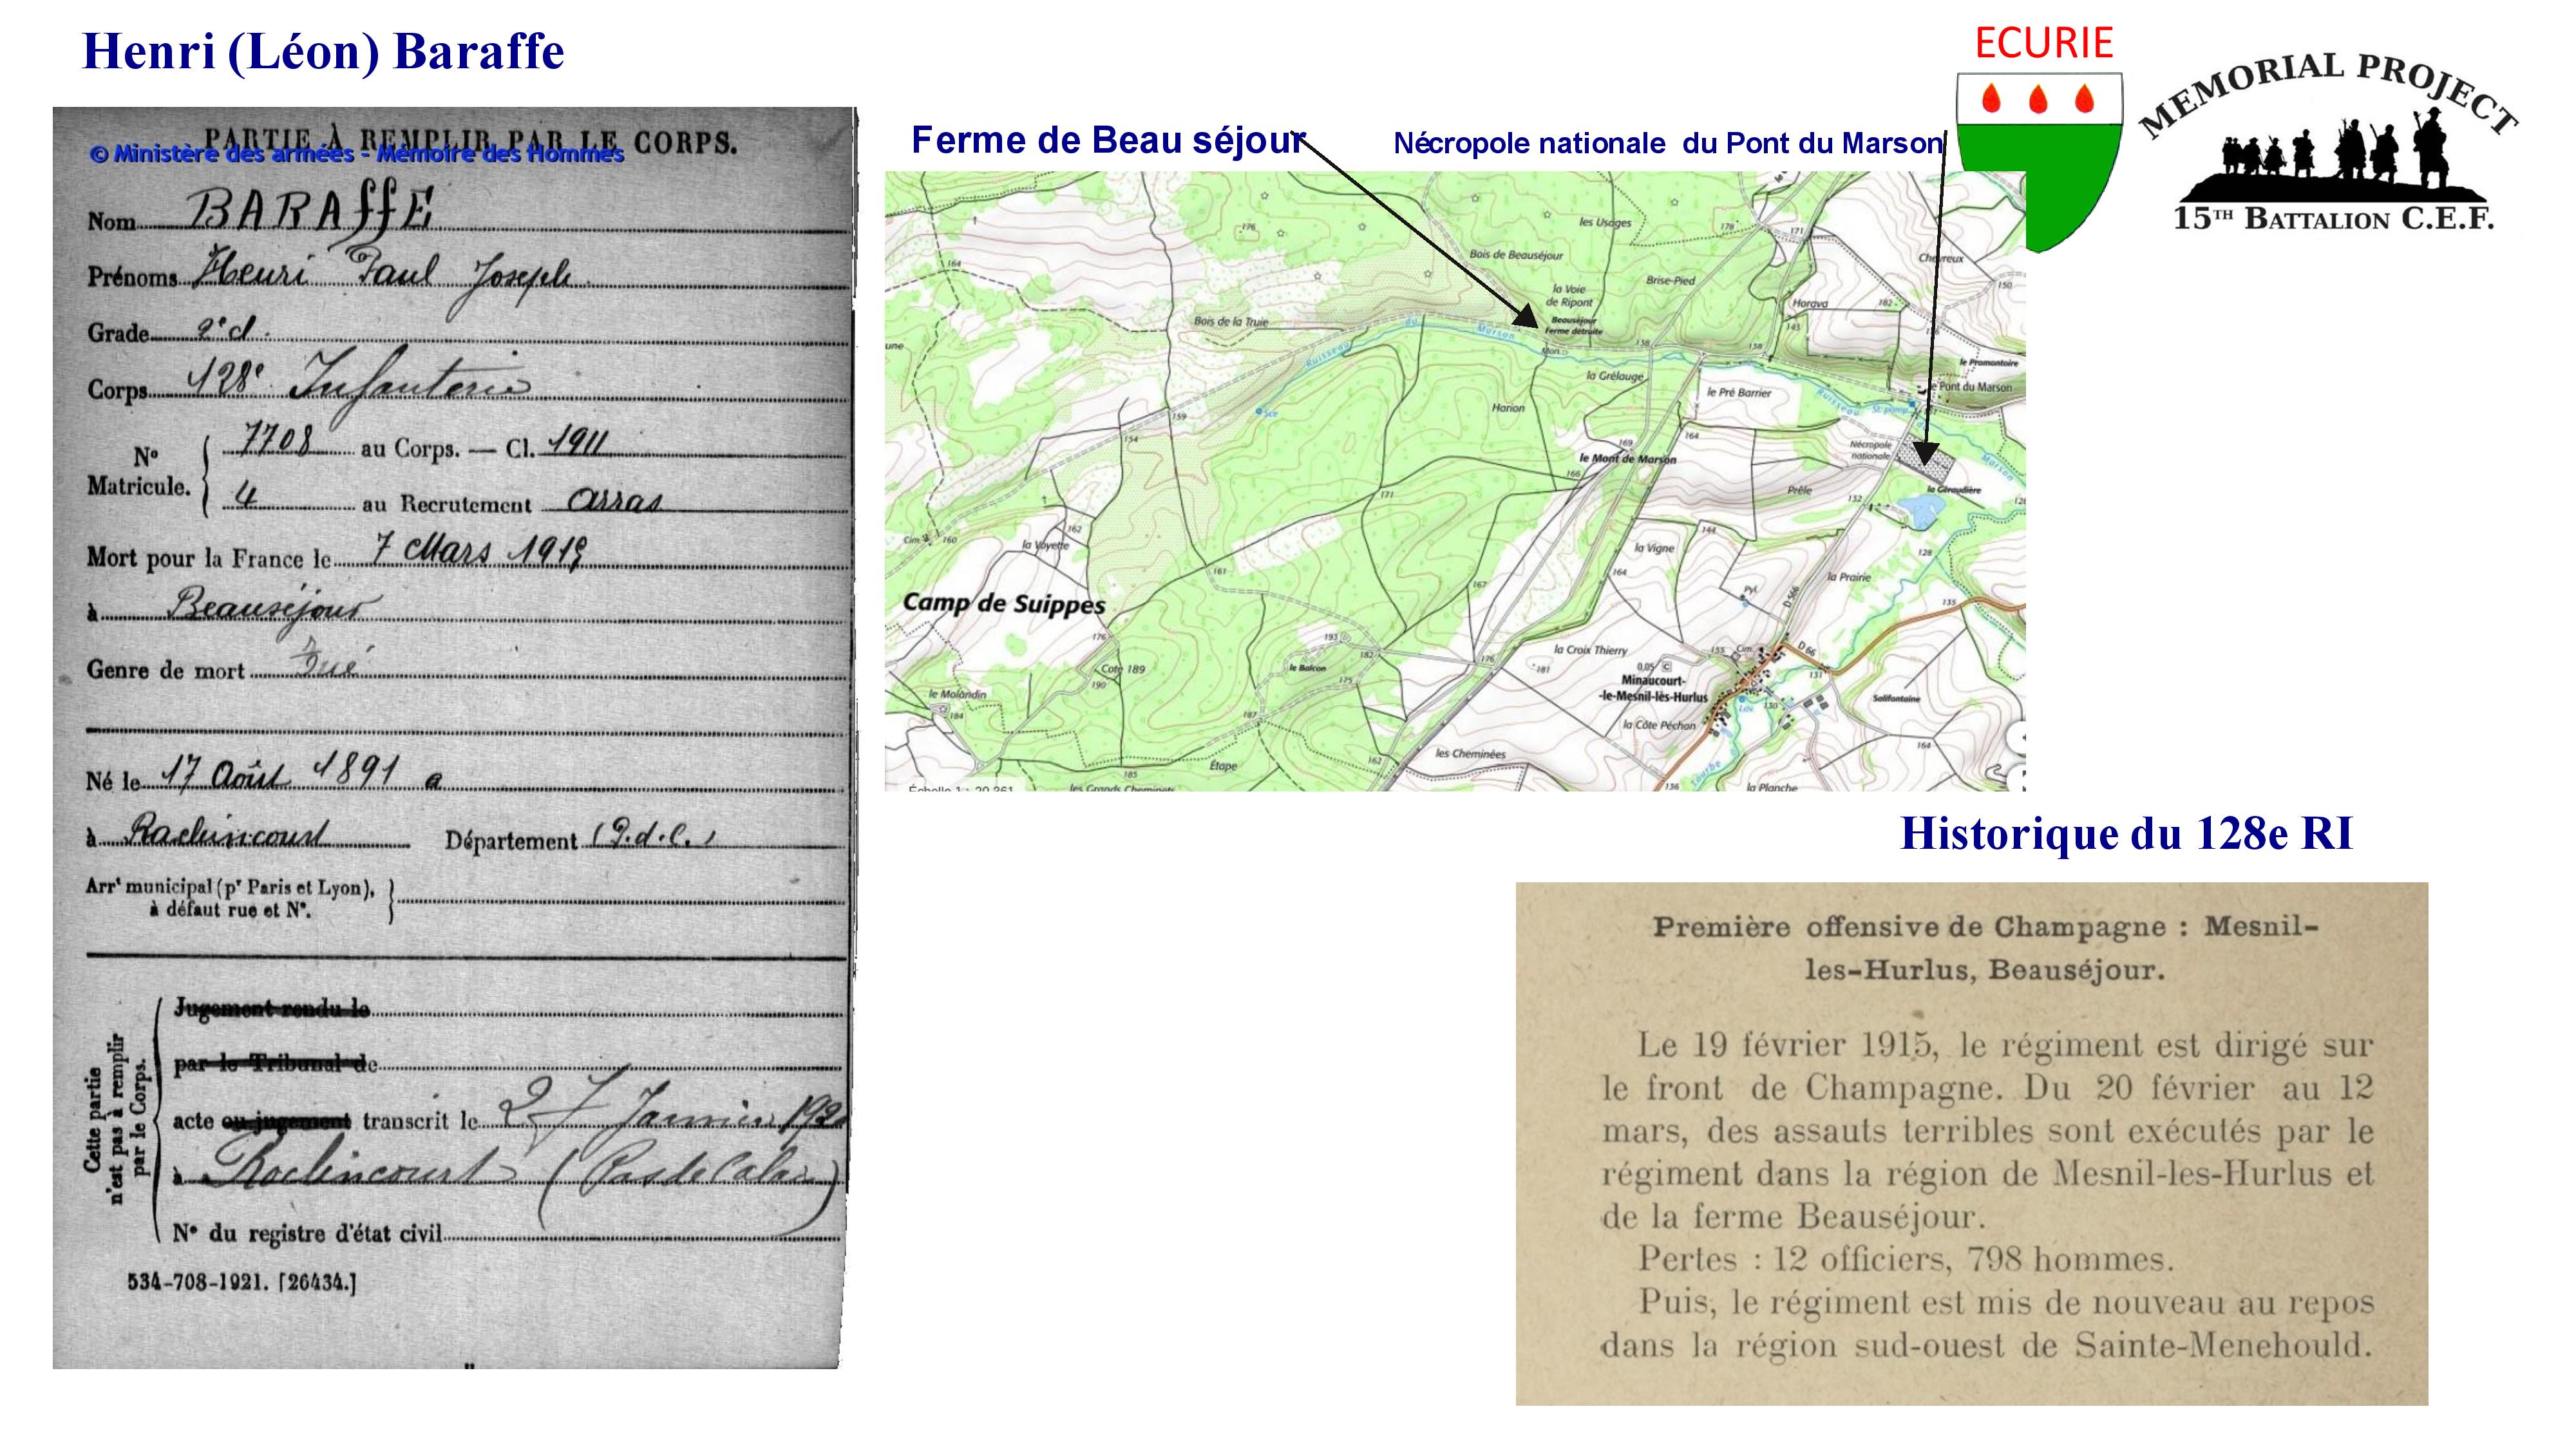 Henri (Léon) Baraffe
ECURIE
MEMORIAL PROJECT
15TH BATTALION C.E.F.
PARTIE À REMPLIR PAR LE CORPS.
© Ministère des armées - Mémoire des Hommes
Nom BARAffE
Prénoms Henri Paul Joseph
Grade 2e cl.
Corps 128e Infanterie
No Matricule. 7708 au Corps. — Cl. 1911
4 au Recrutement Arras
Mort pour la France le 7 Mars 1915
à Beauséjour
Genre de mort Tué
Né le 17 Août 1891 a
à Roclincourt Département (P.d.C.)
Arrt municipal (pr Paris et Lyon),
à défaut rue et No.
Cette partie
n'est pas à remplir
par le Corps.
Jugement rendu le
par le Tribunal de
acte ou jugement transcrit le 27 Janvier 192
à Roclincourt (Pas de Calais)
No du registre d'état civil
534-708-1921. [26434.]
Ferme de Beau séjour
Nécropole nationale du Pont du Marson
les Usages
178
171
176
164
Bois de Beauséjour
Chevreux
150
Brise-Pied
la Voie
de Ripont
Horava
182
Beauséjour
Ferme détruite
Bois de la Truie
143
Ruisseau du Marson
Mon.
158
138
le Promontoire
la Grélauge
le Pont du Marson
le Pré Barrier
Ruisseau
St. pomp.
Marson
Harion
159
Sce
154
164
169
Nécropole
nationale
le Mont de Marson
166
Prêle
la Géraudière
171
132
162
144
Cim.
160
la Voyette
la Vigne
128
161
167
164
la Prairie
Pyl.
D 566
Camp de Suippes
135
176
193
la Croix Thierry
155
Cim.
D 66
Cote 189
182
le Balcon
176
181
0.05
131
190
175
Minaucourt-
-le-Mesnil-lès-Hurlus
le Molandin
Salifontaine
184
187
130
la Côte Péchon
164
les Cheminées
Étape
162
185
Tourbe
136
Échelle 1 : 20 261
les Grands Cheminets
la Planche
Historique du 128e RI
Première offensive de Champagne : Mesnil-
les-Hurlus, Beauséjour.
Le 19 février 1915, le régiment est dirigé sur
le front de Champagne. Du 20 février au 12
mars, des assauts terribles sont exécutés par le
régiment dans la région de Mesnil-les-Hurlus et
de la ferme Beauséjour.
Pertes : 12 officiers, 798 hommes.
Puis, le régiment est mis de nouveau au repos
dans la région sud-ouest de Sainte-Menehould.